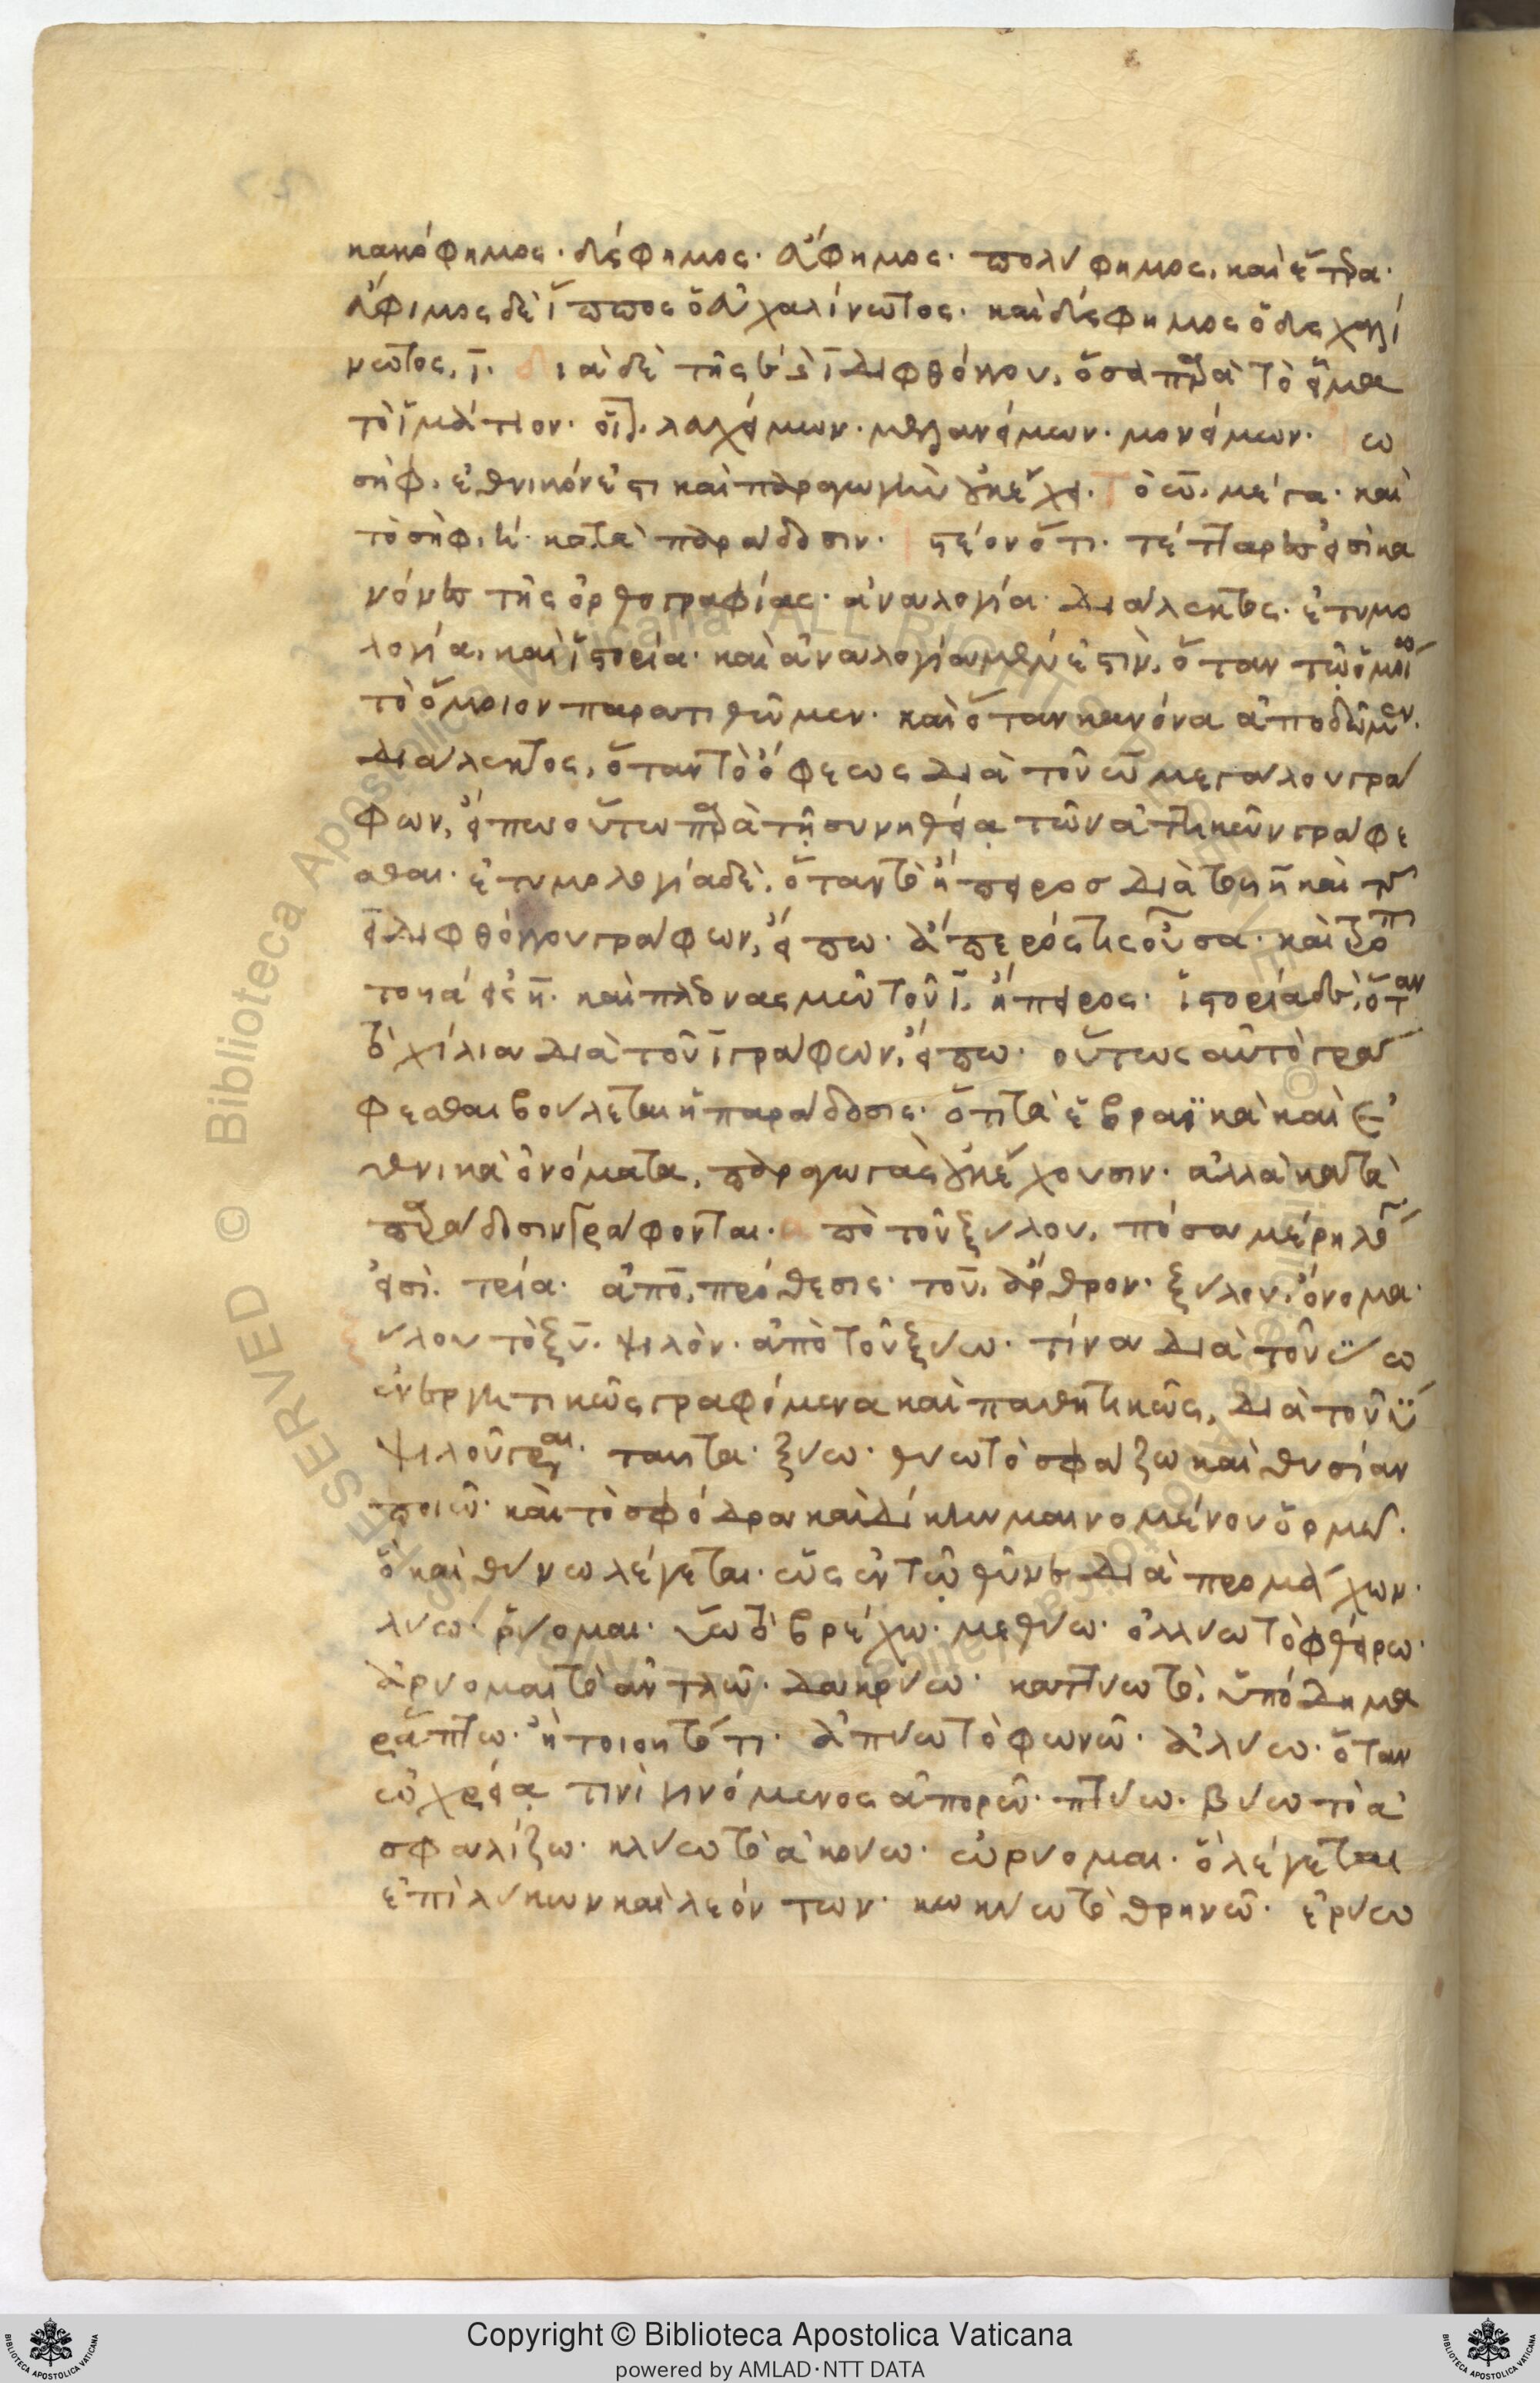 κακόφημος· δύσφημος· ἄφημος· πολύφημος, καὶ ἕτερα·
ἄφιμος δὲ ἵππος ὁ ἀχαλίνωτος· καὶ δύσφημος ὁ δυσχαλί
νωτος, ϊ. διὰ δὲ τῆς ει διφθόγγου, ὅσα παρὰ τὸ εἷμα
τὸ ἱμάτιον· οἷον λαχείμων· μελανείμων· μονείμων· ω
σήφ. ἐθνικόν ἐστι καὶ παραγωγὴν οὐκ ἔχει. τὸ ω, μέγα· καὶ
τὸ σήφ, η· κατὰ παράδοσιν· στέον ὅτι τέσσαρες εἰσὶ κα
νόνες τῆς ὀρθογραφίας· ἀναλογία· διάλεκτος· ἐτυμο
λογία, καὶ ἱστορία· καὶ ἀναλογία μέν ἐστιν, ὅταν τῷ ὁμοίῳ
τὸ ὅμοιον παρατιθῶμεν· καὶ ὅταν κανόνα ἀποδῶμεν.
διάλεκτος, ὅταν τὸ ὄφεως διὰ τοῦ ω μεγάλου γρά
φων, εἴπω οὕτω παρὰ τῇ συνηθείᾳ τῶν ἀττικῶν γράφε
σθαι· ἐτυμολογία δὲ, ὅταν τὸ ἤπειρος διὰ τῆς η καὶ
ει διφθόγγου γράφων, εἴπω· ἄπερός τις οὖσα· καὶ τροπῇ
τοῦ α εἰς η· καὶ πλεονασμῷ τοῦ ι, ἤπειρος· ἱστορία δὲ, ὅταν
τὸ χίλια διὰ τοῦ ι γράφων, εἴπω· οὕτως αὐτὸ γρά
φεσθαι βούλεται ἡ παράδοσις· ὅτι τὰ ἑβραϊκὰ καὶ ἐ
θνικὰ ὀνόματα, παραγωγὰς οὐκ ἔχουσιν· ἀλλὰ κατὰ
παράδοσιν γράφονται· ἀπὸ τοῦ ξύλου, πόσα μέρη λόγου
εἰσί. τρία· ἀπὸ, πρόθεσις· τοῦ, ἄρθρον· ξύλου, ὄνομα·
ξύλου τὸ ξυ. ψιλὸν· ἀπὸ τοῦ ξύω· τίνα διὰ τοῦ ύω
ἐνεργητικῶς γραφόμενα καὶ παθητικῶς, διὰ τοῦ υ
ψιλοῦ γράφεται· ταῦτα· ξύω· θύω τὸ σφάζω καὶ θυσίαν
ποιῶ· καὶ τὸ σφόδρα καὶ δίκην μαινομένου ὁρμῶ·
ὃ καὶ θύνω λέγεται· ὡς ἐν τῷ θῦνε διὰ προμάχων·
λύω· ῥύομαι· ὕω τὸ βρέχω· μεθύω· ὀλλύω τὸ φθείρω·
ἀρύομαι τὸ ἀντλῶ· δακρύω· καττύω τὸ, ὑπόδημα
ράπτω· ἢ τοιοῦτό τι· ἀπύω τὸ φωνῶ· ἀλύω· ὅταν
ἐν χρείᾳ τινὶ γινόμενος ἀπορῶ· πτύω· βύω τὸ ἀ
σφαλίζω· κλύω τὸ ἀκούω· ὠρύομαι· ὃ λέγεται
ἐπὶ λύκων καὶ λεόντων· κωκύω τὸ θρηνῶ· ἐρύω
Copyright © Biblioteca Apostolica Vaticana
powered by AMLAD·NTT DATA